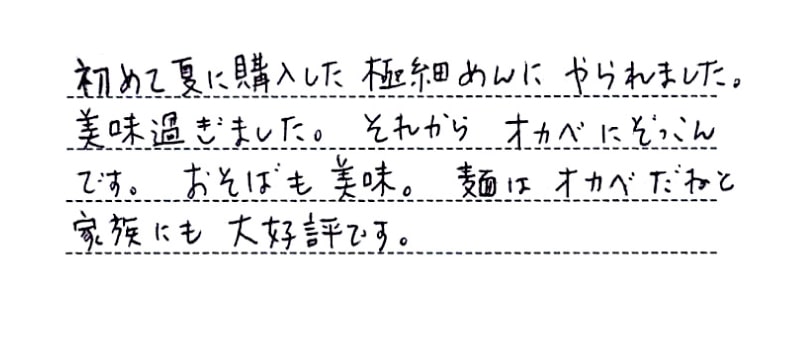 初めて夏に購入した極細めんにやられました。
美味過ぎました。それからオカベにぞっこん
です。おそばも美味。麺はオカベだねと
家族にも大好評です。